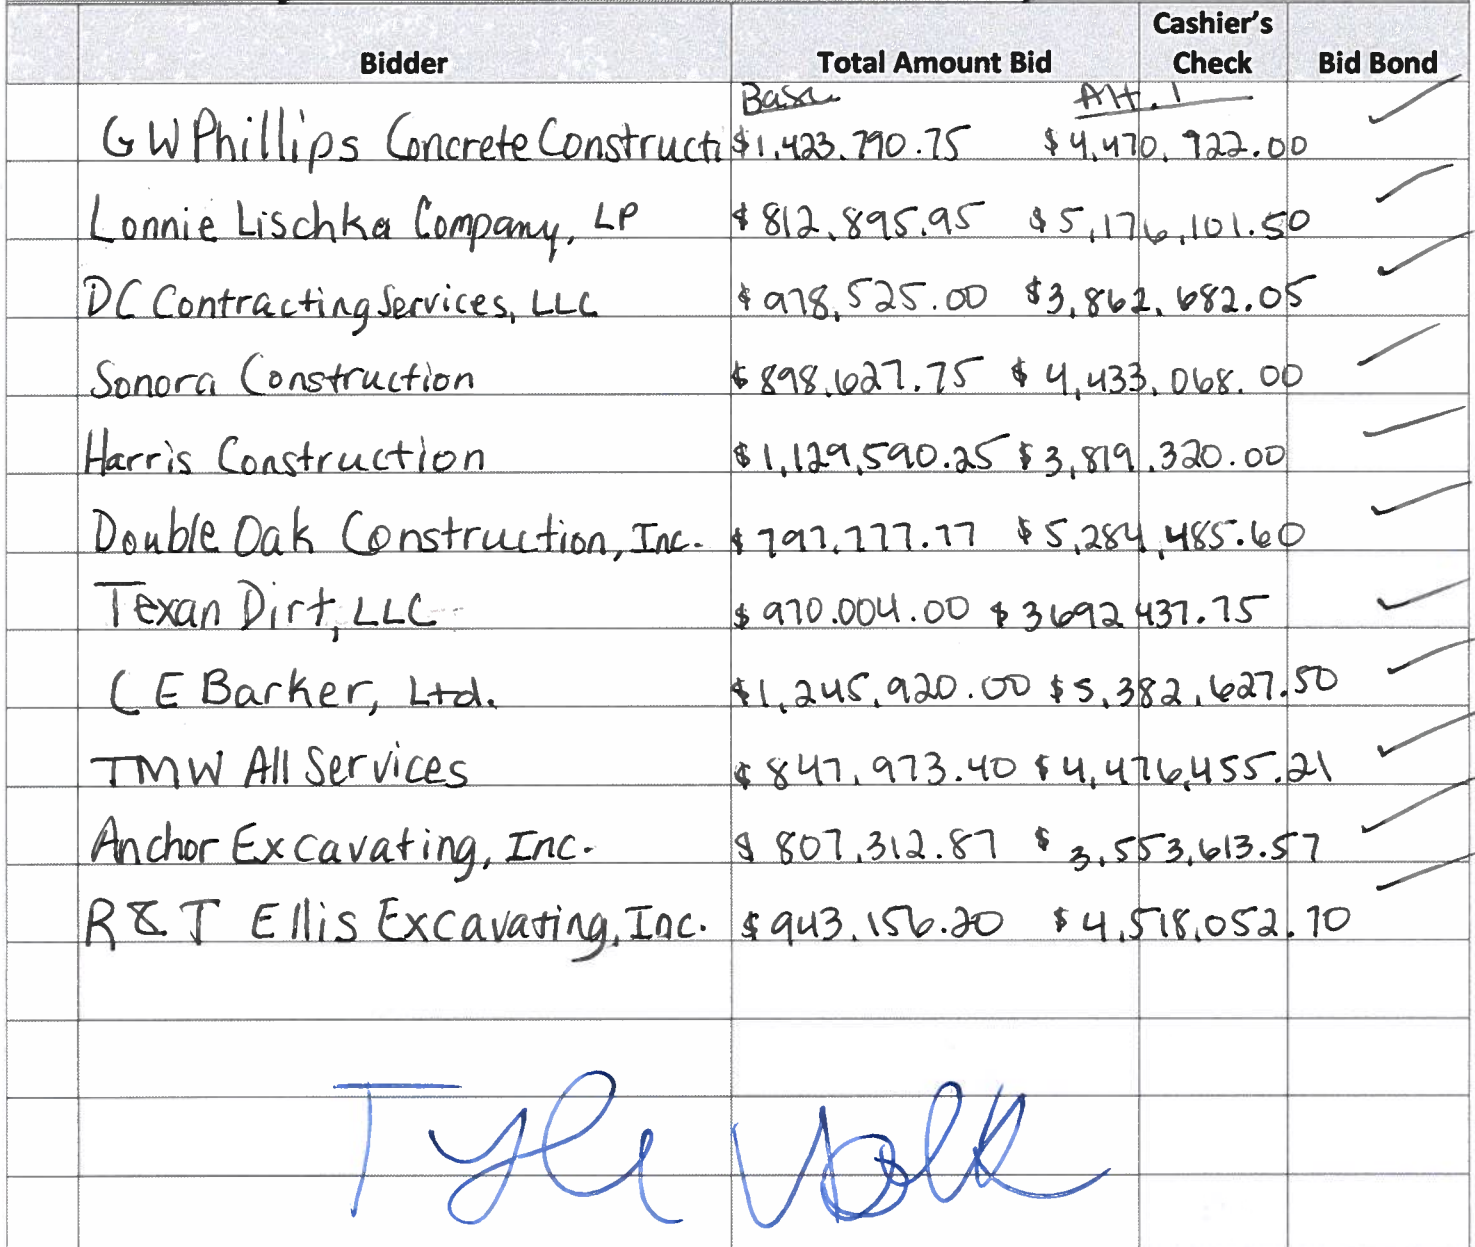 Bidder Total Amount Bid Cashier's Check Bid Bond
Base Alt. 1
GW Phillips Concrete Constructi $1,423,790.75 $4,470,922.00 ✓
Lonnie Lischka Company, LP $812,895.95 $5,176,101.50 ✓
DC Contracting Services, LLC $978,525.00 $3,862,682.05 ✓
Sonora Construction $898,627.75 $4,433,068.00 ✓
Harris Construction $1,129,590.25 $3,819,320.00 ✓
Double Oak Construction, Inc. $797,777.77 $5,284,485.60 ✓
Texan Dirt, LLC $970.004.00 $3692437.75 ✓
CE Barker, Ltd. $1,245,920.00 $5,382,627.50 ✓
TMW All Services $847,973.40 $4,476,455.21 ✓
Anchor Excavating, Inc. $807,312.87 $3,553,613.57 ✓
R&T Ellis Excavating, Inc. $943,156.20 $4,518,052.70 ✓
Tyler Volk